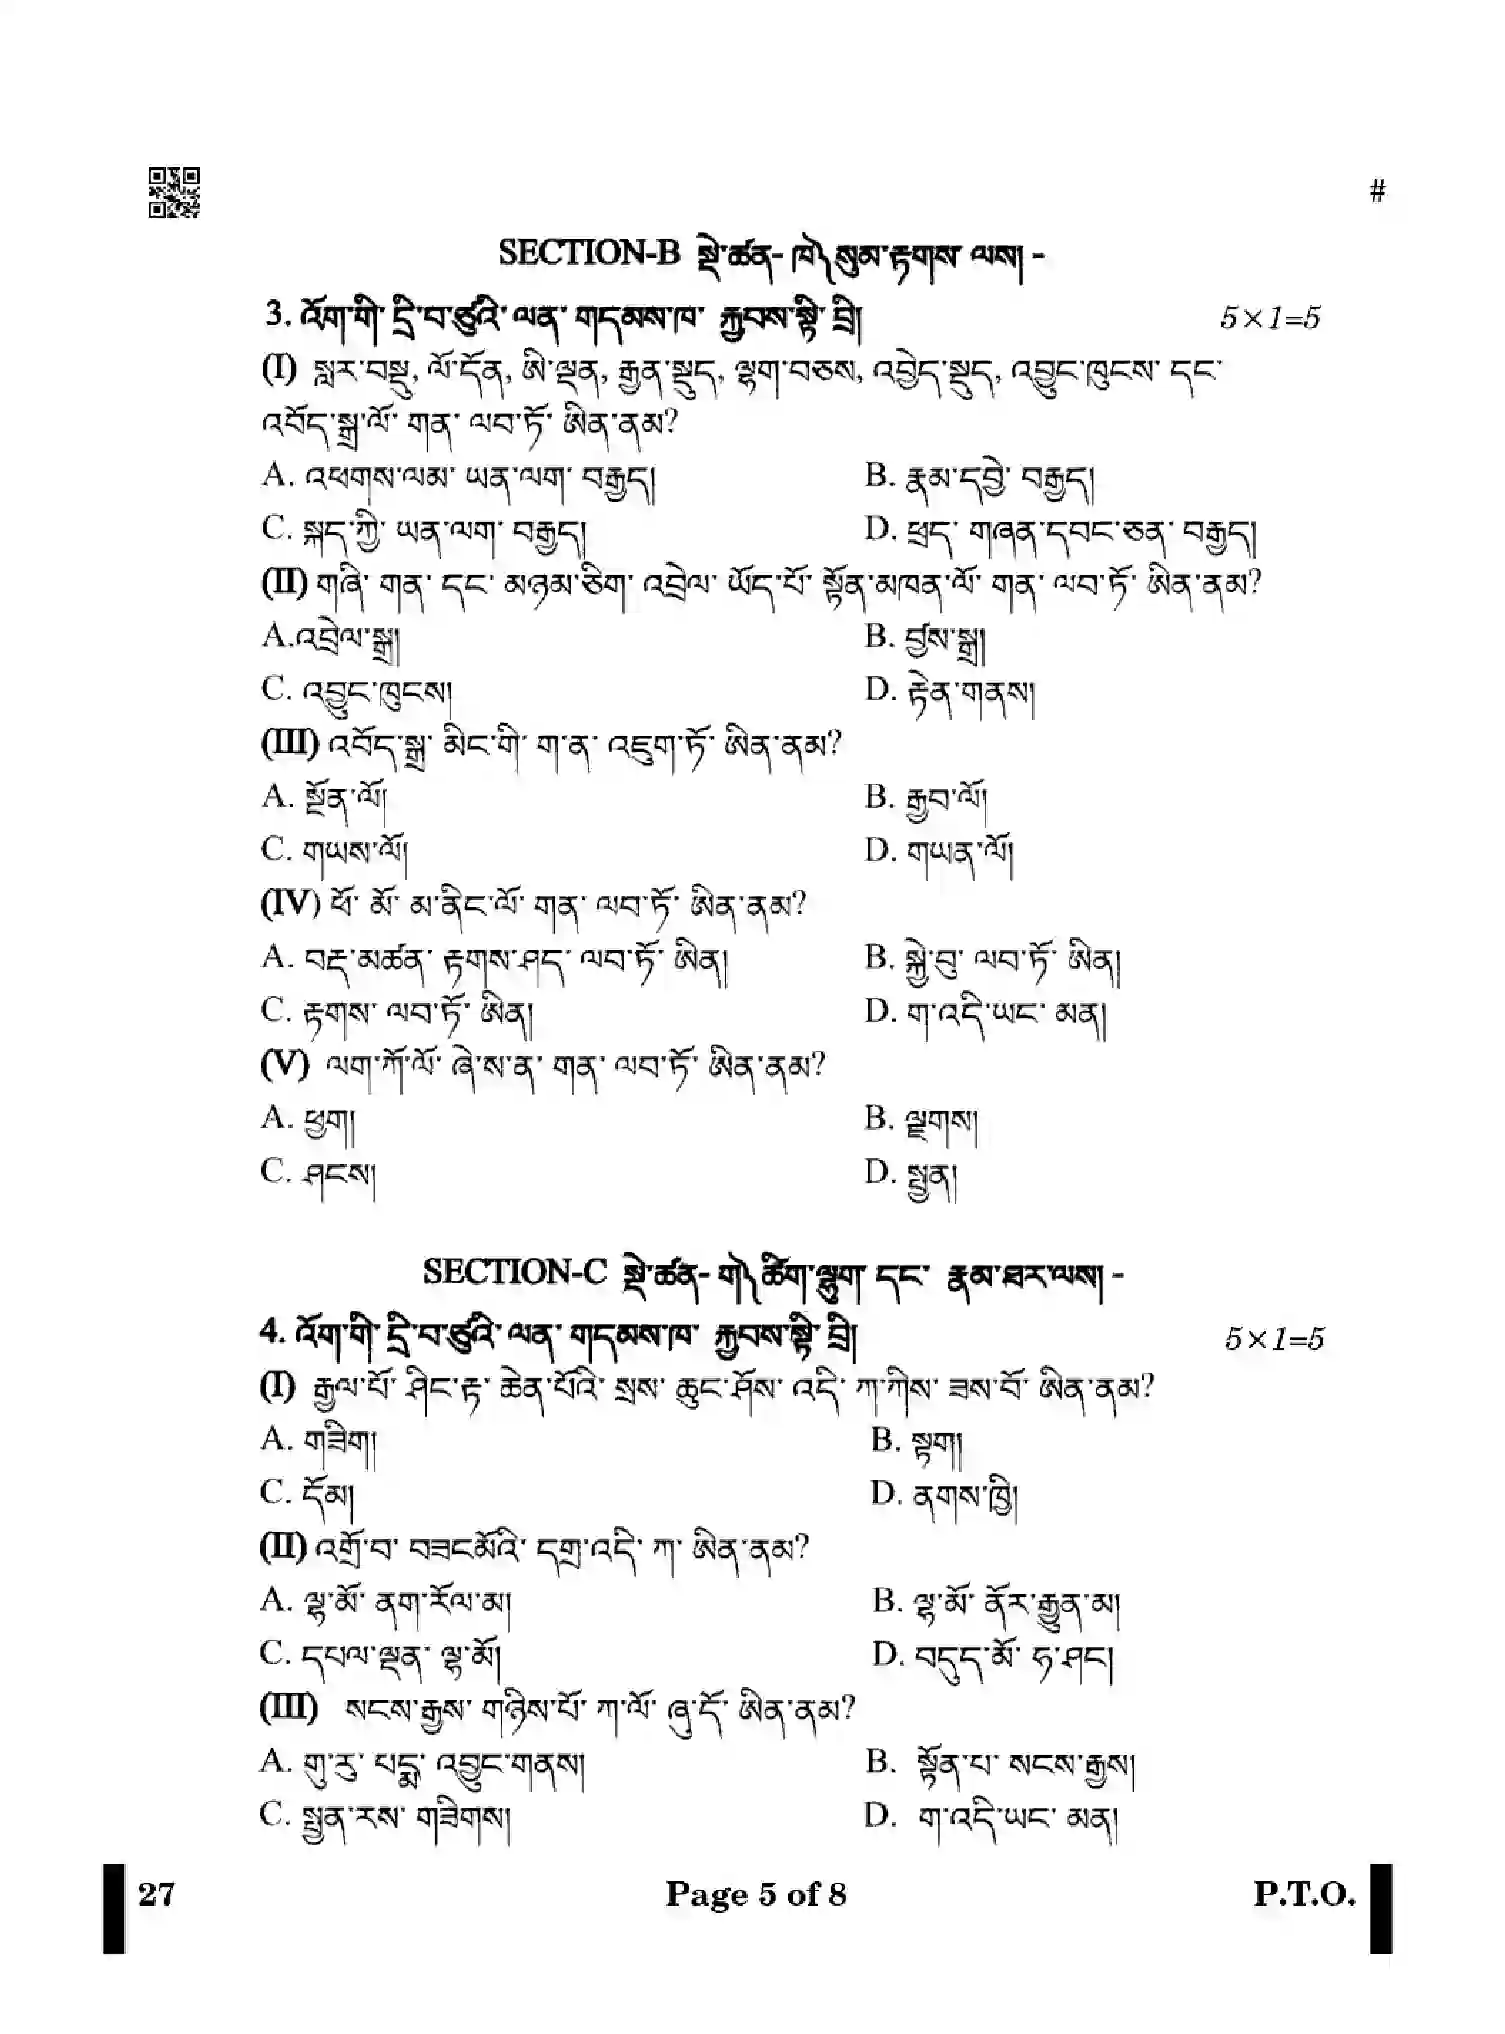 #
SECTION-B སྡེ་ཚན- ཁ༽ སུམ་རྟགས་ ལས། -
3. འོག་གི་ དྲི་བ་ཙུའི་ ལན་ གདམས་ཁ་ རྐྱབས་སྟི་ བྲི། 5×1=5
(I) སླར་བསྡུ, ལོ་དོན, ཨི་ལྡན, རྒྱན་སྡུད, ལྷག་བཅས, འབྱེད་སྡུད, འབྱུང་ཁུངས་ དང་
འབོད་སྒྲ་ལོ་ གན་ ལབ་ཏོ་ ཨིན་ནམ?
A. འཕགས་ལམ་ ཡན་ལག་ བརྒྱད།
B. རྣམ་དབྱེ་ བརྒྱད།
C. སྐད་ཀྱི་ ཡན་ལག་ བརྒྱད།
D. ཕྲད་ གཞན་དབང་ཅན་ བརྒྱད།
(II) གཞི་ གན་ དང་ མཉམ་ཅིག་ འབྲེལ་ ཡོད་པོ་ སྟོན་མཁན་ལོ་ གན་ ལབ་ཏོ་ ཨིན་ནམ?
A.འབྲེལ་སྒྲ།
B. བྱས་སྒྲ།
C. འབྱུང་ཁུངས།
D. རྟེན་གནས།
(III) འབོད་སྒྲ་ མིང་གི་ ག་ན་ འཇུག་ཏོ་ ཨིན་ནམ?
A. སྔོན་ལོ།
B. རྒྱབ་ལོ།
C. གཡས་ལོ།
D. གཡན་ལོ།
(IV) ཕོ་ མོ་ མ་ནིང་ལོ་ གན་ ལབ་ཏོ་ ཨིན་ནམ?
A. བརྡ་མཚན་ རྟགས་ཤད་ ལབ་ཏོ་ ཨིན།
B. སྐྱེ་བུ་ ལབ་ཏོ་ ཨིན།
C. རྟགས་ ལབ་ཏོ་ ཨིན།
D. ག་འདི་ཡང་ མན།
(V) ལག་ཀོ་ལོ་ ཞེ་ས་ན་ གན་ ལབ་ཏོ་ ཨིན་ནམ?
A. ཕྱག།
B. ལྗགས།
C. ཤངས།
D. སྤྱན།
SECTION-C སྡེ་ཚན- ག༽ ཚིག་ལྷུག་ དང་ རྣམ་ཐར་ལས། -
4. འོག་གི་ དྲི་བ་ཙུའི་ ལན་ གདམས་ཁ་ རྐྱབས་སྟི་ བྲི། 5×1=5
(I) རྒྱལ་པོ་ ཤིང་རྟ་ ཆེན་པོའི་ སྲས་ ཆུང་ཤོས་ འདི་ ཀ་ཀིས་ ཟས་བོ་ ཨིན་ནམ?
A. གཟིག།
B. སྟག།
C. དོམ།
D. ནགས་ཁྱི།
(II) འགྲོ་བ་ བཟངམོའི་ དགྲ་འདི་ ཀ་ ཨིན་ནམ?
A. ལྷ་མོ་ ནག་རོལ་མ།
B. ལྷ་མོ་ ནོར་རྒྱུན་མ།
C. དཔལ་ལྡན་ ལྷ་མོ།
D. བདུད་མོ་ ཧ་ཤང།
(III) སངས་རྒྱས་ གཉིས་པོ་ ཀ་ལོ་ ཞུ་དོ་ ཨིན་ནམ?
A. གུ་རུ་ པདྨ་ འབྱུང་གནས།
B. སྟོན་པ་ སངས་རྒྱས།
C. སྤྱན་རས་ གཟིགས།
D. ག་འདི་ཡང་ མན།
27 Page 5 of 8 P.T.O.